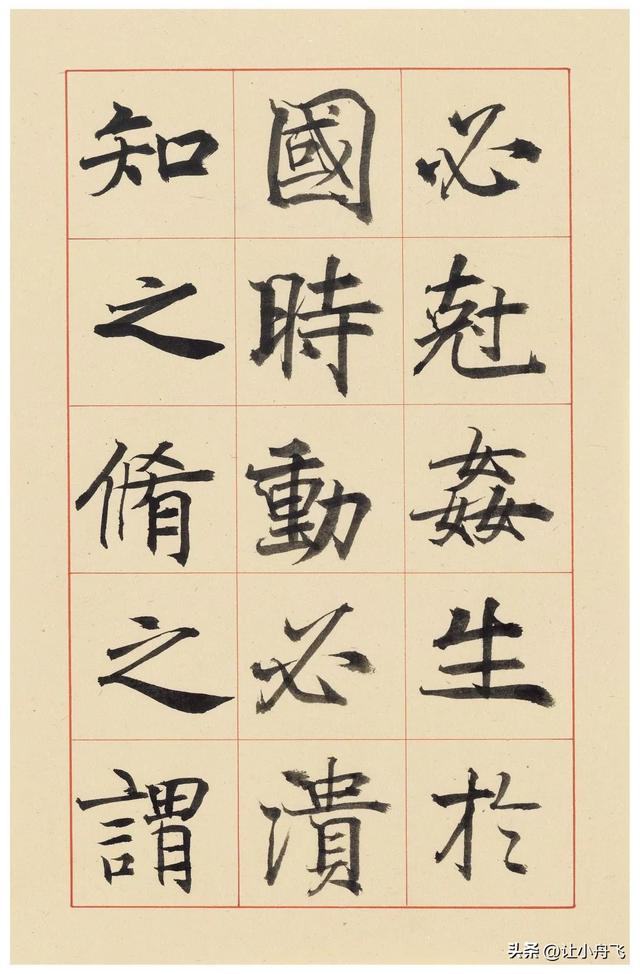 必尅姦生於
國時動必潰
知之脩之謂
头条 @让小舟飞